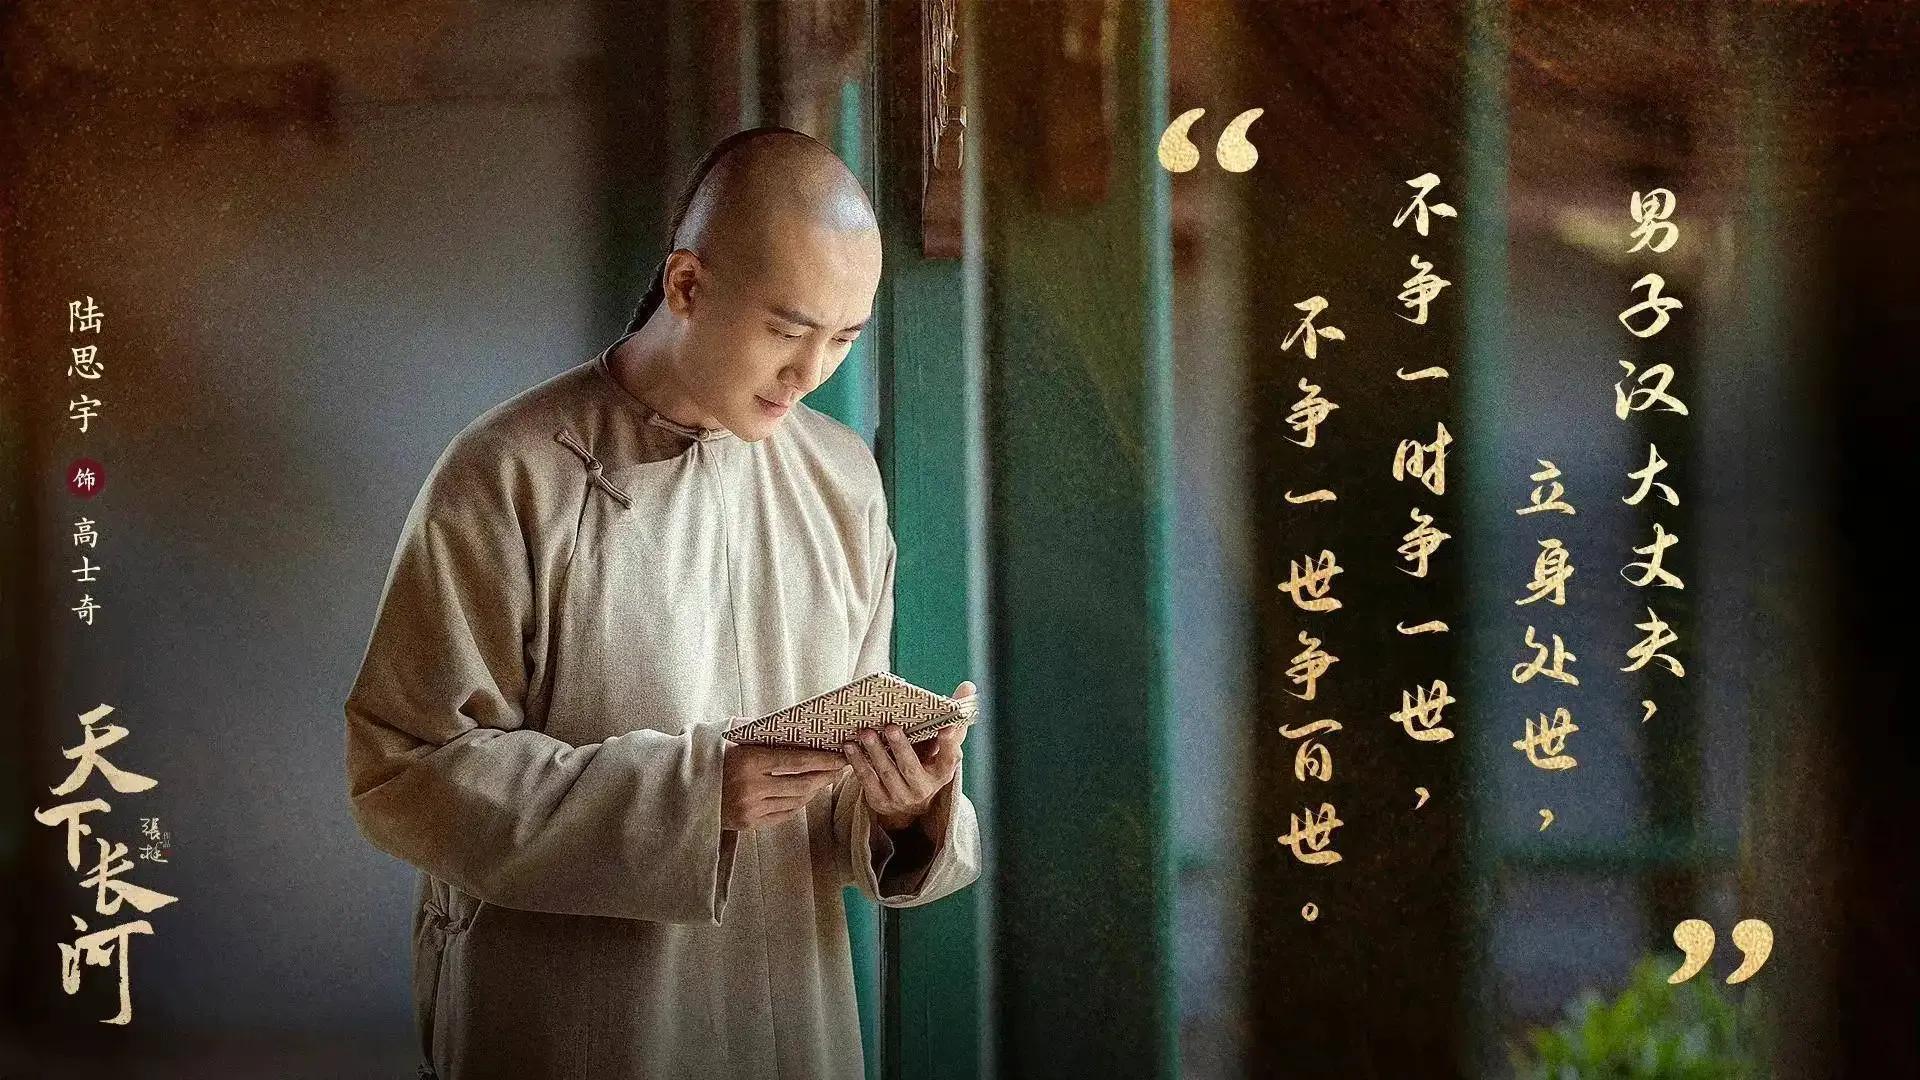 男子汉大丈夫，
立身处世，
不争一时争一世，
不争一世争百世。
陆思宇
饰
高士奇
天下长河
張挺